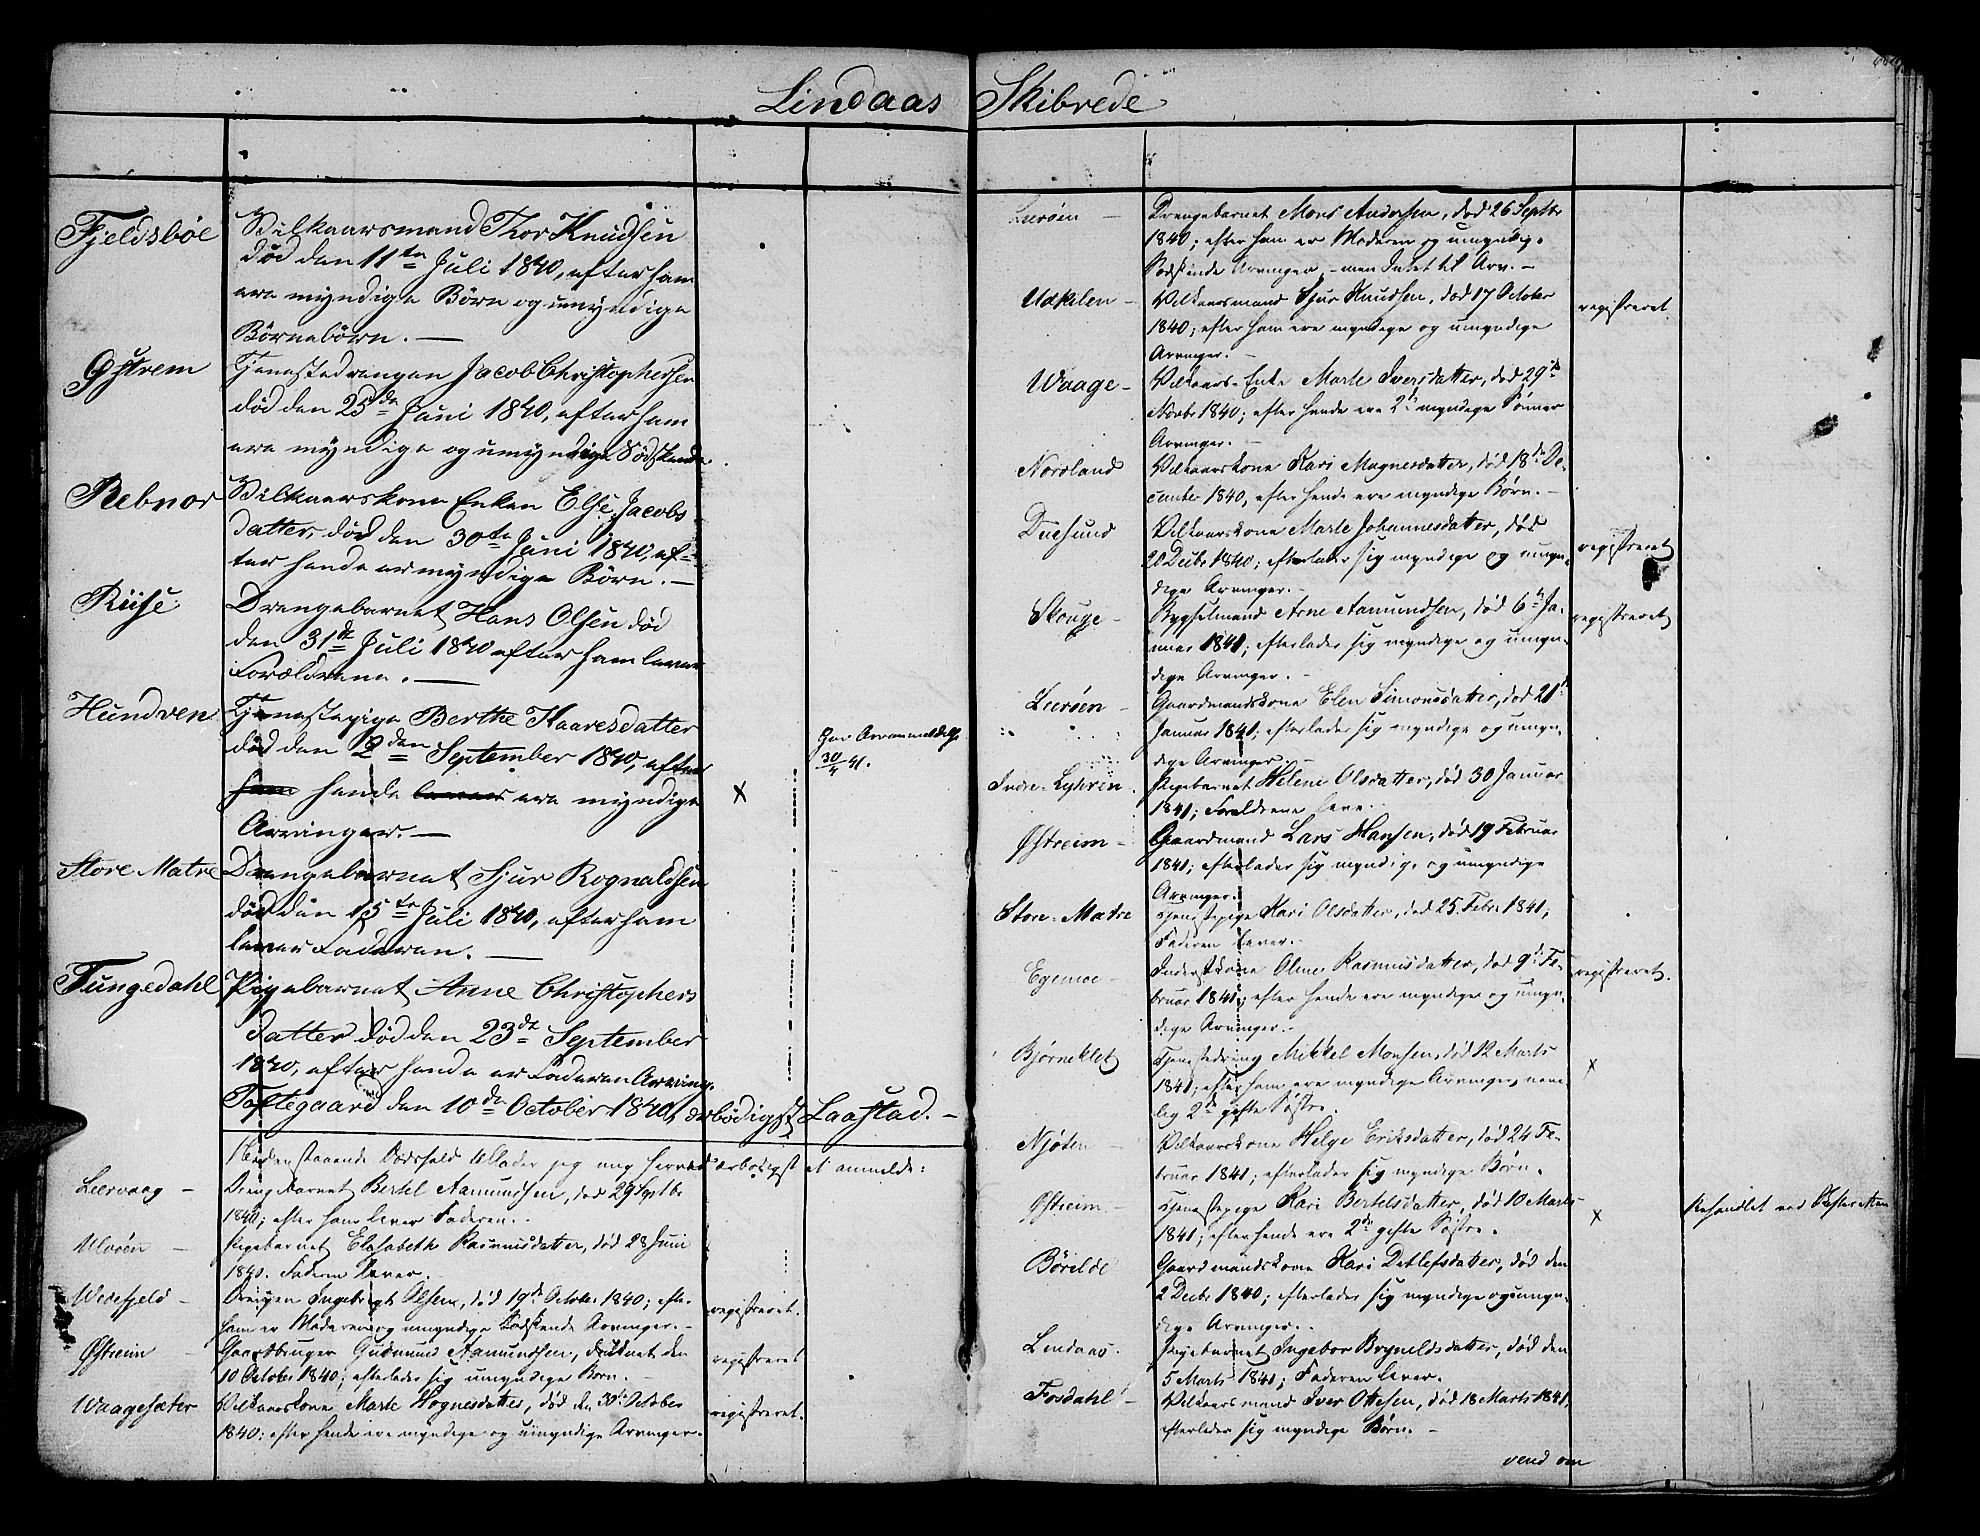 Lindaas Skibrede
Fjeldsbøe Vilkaarsmand Thor Knudsen
død den 11te Juli 1840, efter ham
ere myndige Børn og umyndige
Børnebørn. —
Østrem Tjenestedrengen Jacob Christophersen
død den 25de Juni 1840, efter ham
ere myndige og umyndige Sødskende
Rebnor Vilkaarskone Enken Else Jacobs
datter, død den 30te Juni 1840, ef-
ter hende er myndige Børn. —
Riise Drengebarnet Hans Olsen død
den 31te Juli 1840 efter ham lever
Forældrene. —
Hundven Tjenestepige Berthe Kaaresdatter
død den den September 1840, efter
ham hende lever ere myndige
Arvinger. —
x
30/4 41.
Store Matre Drengebarnet Sjur Rognaldsen
død den 15te Juli 1840, efter ham
lever Faderen. —
Tungedahl Pigebarnet Anne Christophers
datter død den 23de September
1840, efter hende er Faderen Arving.
Toftegaard den 10de October 1840, ærbødigst Laastad. —
Nedenstaaende Dødsfald tillader jeg mig herved ærbødigst at anmelde:
Leervaag — Drengebarnet Bertel Aamundsen, død 29 Septbr
1840; efter ham lever Faderen.
Ulvøen — Pigebarnet Elisabeth Rasmusdatter, død 28 Juni
1840. Faderen lever.
Wedefjeld — Drengen Ingebrigt Olsen, død 19de October 1840; efter
ham er Moderen og umyndige Sødskende Arvinger. — registreret.
Østreim — Gaardbruger Gudmund Aamundsen, druknet den
10 October 1840; efterlader sig umyndige Børn. — registreret
Waagesæter Vilkaarskone Marte Hognesdatter, død den 30te October
1840; efter hende ere myndige og umyndige Arvinger. registreret.
Lurøen — Drengebarnet Mons Andersen, død 26 Septbr
1840; efter ham er Moderen og umyndige
Sødskende Arvinger, — men Intet til Arv. —
Udkilen — Vilkaarsmand Sjur Knudsen, død 17 October
1840; efter ham ere myndige og umyndige
Arvinger. — registreret.
Waage — Vilkaars-Enke Marte Iversdatter, død 29de
Novbr 1840; efter hende ere 2de myndige Sønner
Arvinger. —
Nordland Vilkaarskone Kari Magnesdatter, død 18de De-
cember 1840, efter hende ere myndige Børn. —
Duesund Vilkaarskone Marte Johannesdatter, død
20 Decbr 1840; efterlader sig myndige og umyn-
dige Arvinger. — registreret
Skouge — Bygselmand Arne Aamundsen, død 6te Ja-
nuar 1841; efterlader sig myndige og umyn-
dige Arvinger. — registreret
Lurøen — Gaardmandskone Elen Simonsdatter, død 21de
Januar 1841; efterlader sig myndige og umyn-
dige Arvinger. —
Indre-Lyhren. Pigebarnet Helene Olsdatter, død 30 Januar
1841; Forældrene leve.
Østreim — Gaardmand Lars Hansen, død 19 Februar
1841; efterlader sig myndige og umyndige
Arvinger.
Store-Matre Tjenestepige Kari Olsdatter, død 25 Febr 1841;
Faderen lever.
Egemoe — Inderstkone Oline Rasmusdatter, død 9de Fe-
bruar 1841; efter hende ere myndige og umyn-
dige Arvinger. — registreret.
Bjørneklet Tjenestedreng Mikkel Monsen, død 12 Marts
1841, efter ham ere myndige Arvinger, nem-
lig 2de gifte Søstre. x
Njøten — Vilkaarskone Helge Eriksdatter, død 24 Fe-
bruar 1841; efterlader sig myndige Børn.
Østreim — Tjenestepige Kari Bertelsdatter, død 10 Marts
1841; efter hende ere 2de gifte Søstre. x Behandlet ved
Børilde Gaardmandskone Kari Detlefsdatter, død den
2 Decbr 1840; efterlader sig myndige og umyn-
dige Arvinger.
Lindaas. Pigebarnet Ingebor Brynildsdatter, død den
5 Marts 1841; Faderen lever.
Fosdahl — Vilkaarsmand Iver Ottesen, død 18 Marts 1841,
efterlader sig myndige Børn. —
vend om